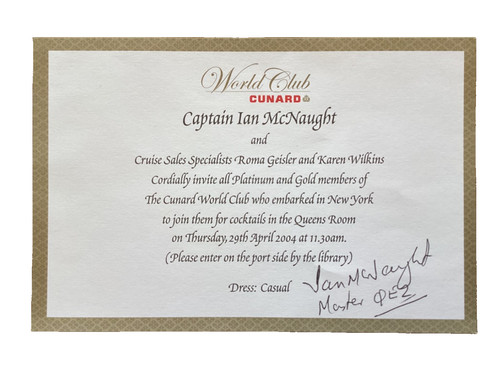 World Club
CUNARD
Captain Ian McNaught
and
Cruise Sales Specialists Roma Geisler and Karen Wilkins
Cordially invite all Platinum and Gold members of
The Cunard World Club who embarked in New York
to join them for cocktails in the Queens Room
on Thursday, 29th April 2004 at 11.30am.
(Please enter on the port side by the library)
Dress: Casual
Ian McNaught
Master QE2